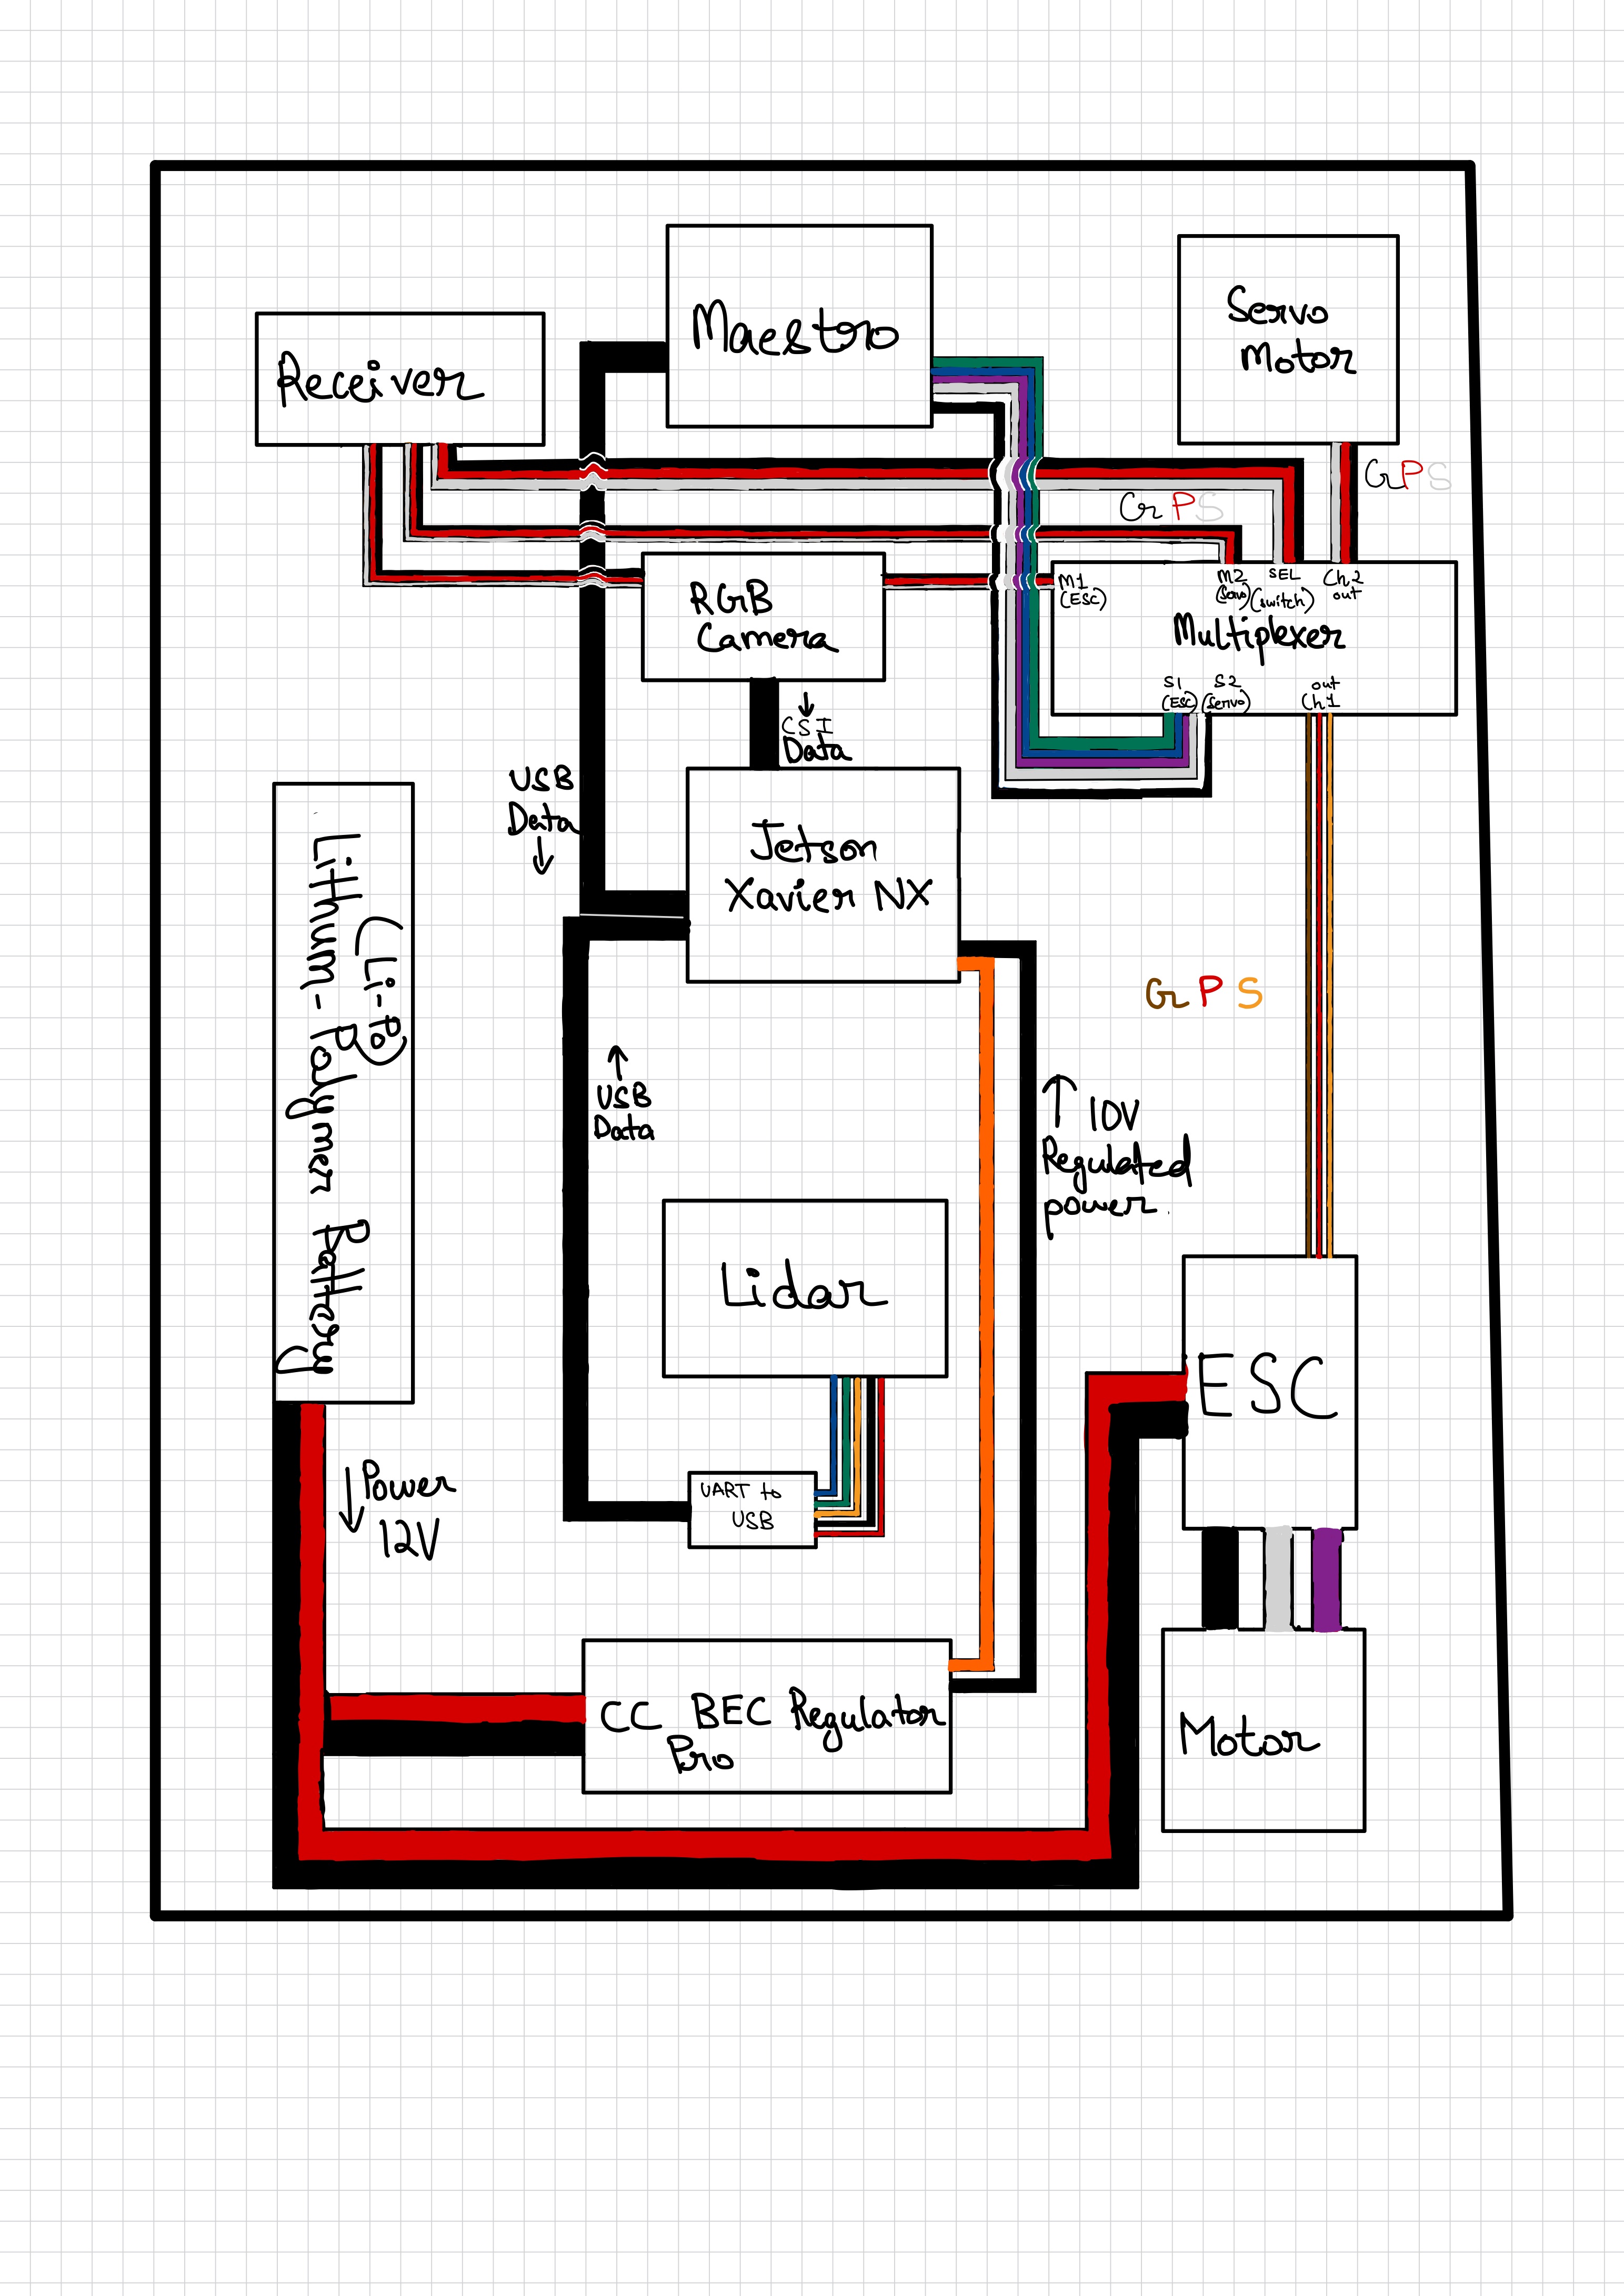 Maestro
Servo
Motor
Receiver
GPS
GPS
M1
(ESC)
M2
(Servo)
SEL
(switch)
Ch2
out
RGB
Camera
Multiplexer
S1
(ESC)
S2
(Servo)
out
Ch1
↓
CSI
Data
USB
Data
↓
Jetson
Xavier NX
(Li-Po)
Lithium-Polymer Battery
GPS
↑
USB
Data
↑ 10V
Regulated
power.
Lidar
ESC
↓ Power
12V
UART to
USB
CC BEC Regulator
Pro
Motor